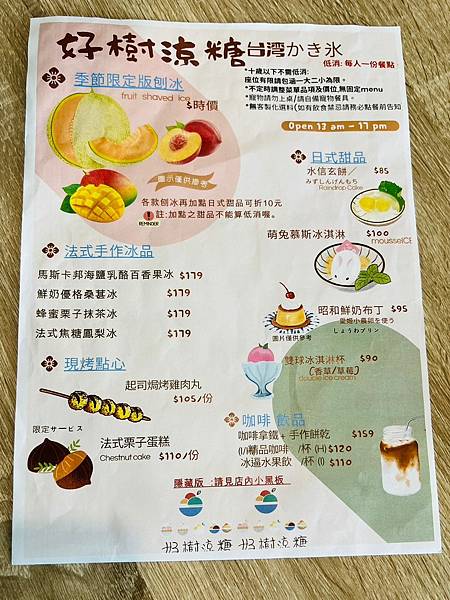 好樹涼糖台湾かき氷
低消: 每人一份餐點
*十歲以下不需低消:
座位有限請包涵一大二小為限。
*不定時調整菜單品項及價位,無固定menu
*寵物請勿上桌/請自備寵物餐具。
*無客製化選料(如有飲食禁忌請務必點餐前告知
Open 13 am - 17 pm
季節限定版刨冰
fruit shaved ice
$時價
圖示僅供參考
各款刨冰再加點日式甜品可折10元
註:加點之甜品不能算低消喔。
REMINDER
日式甜品
水信玄餅／ $85
みずしんげんもち
Raindrop Cake
萌兔慕斯冰淇淋 $100
mousseICE
昭和鮮奶布丁 $95
愛姬小農卵を使う
しょうわプリン
圖片僅供參考
雙球冰淇淋杯 $90
(香草/草莓)
double ice cream
法式手作冰品
馬斯卡邦海鹽乳酪百香果冰 $179
鮮奶優格桑甚冰 $179
蜂蜜栗子抹茶冰 $179
法式焦糖鳳梨冰 $179
現烤點心
起司焗烤雞肉丸
$105/份
限定サービス
法式栗子蛋糕
Chestnut cake $110/份
咖啡 飲品
咖啡拿鐵+ 手作餅乾 $159
(I/)精品咖啡 /杯 (H) $120
冰逼水果飲 /杯 (I) $110
隱藏版 :請見店內小黑板
好樹涼糖 好樹涼糖